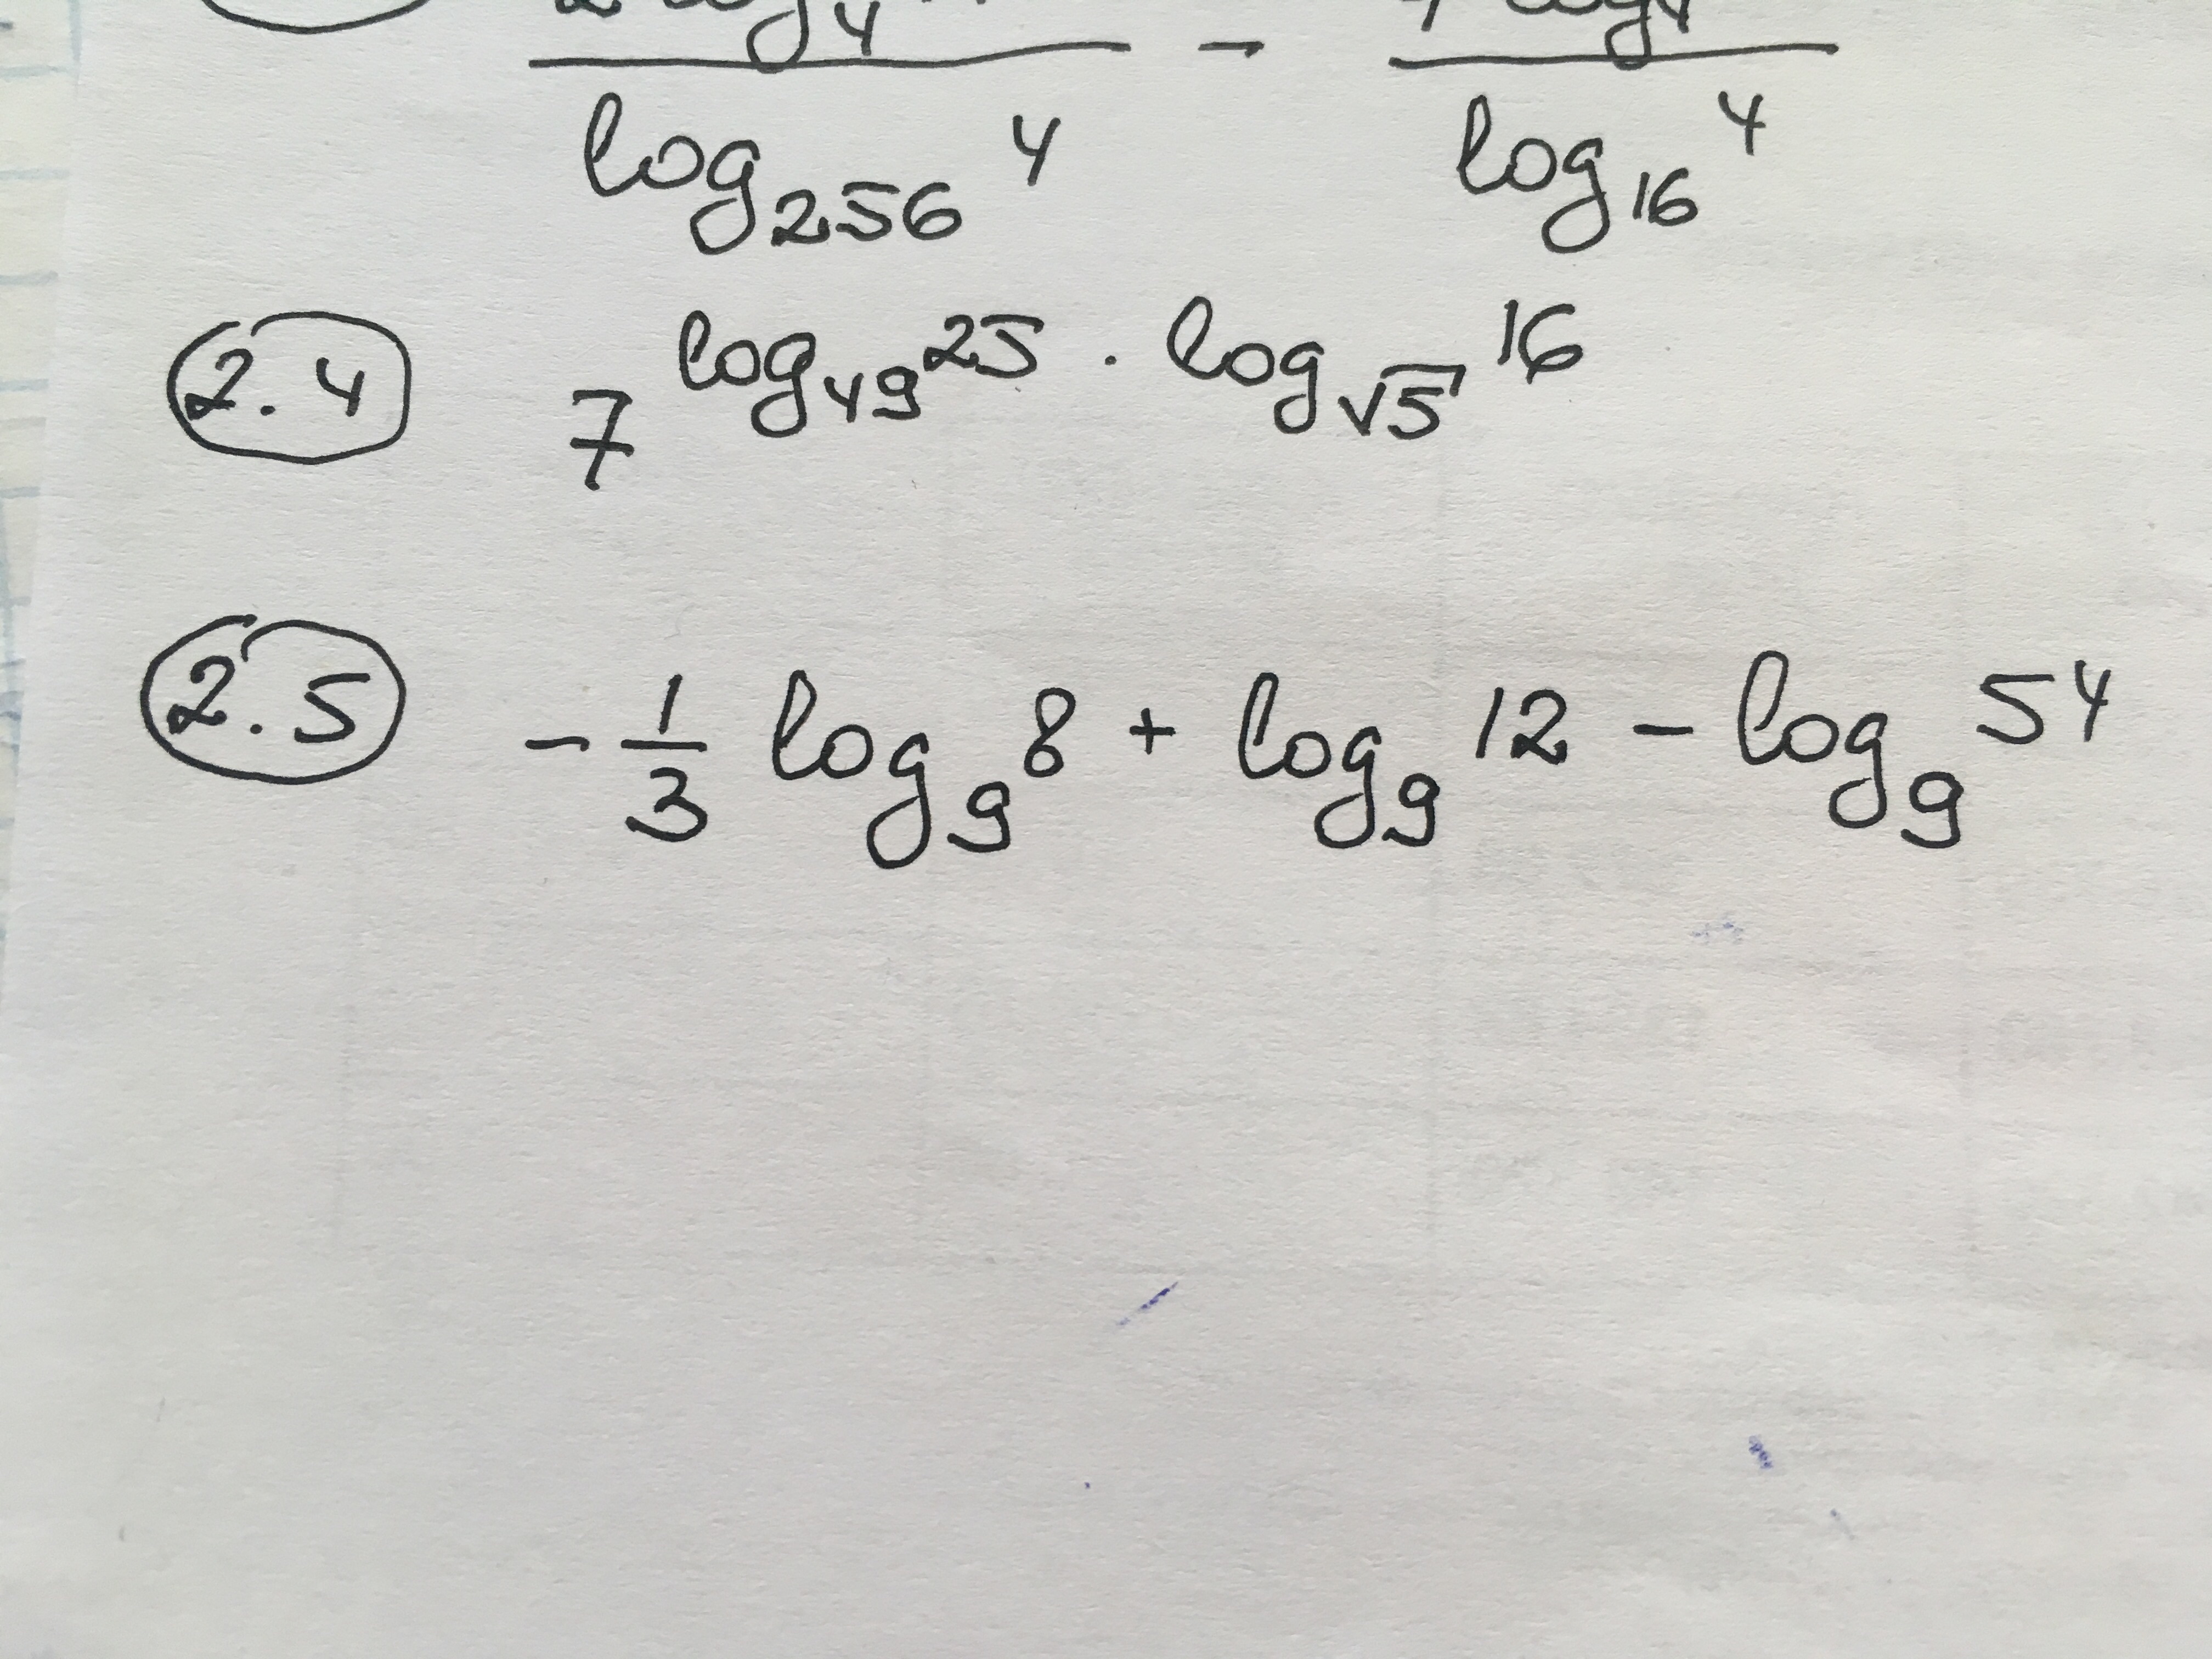 2 log₄ - log₄
log₂₅₆ 4 log₁₆ 4
2.4 7^(log₄₉ 25 · log_√5 16)
2.5 - 1/3 log₉ 8 + log₉ 12 - log₉ 54